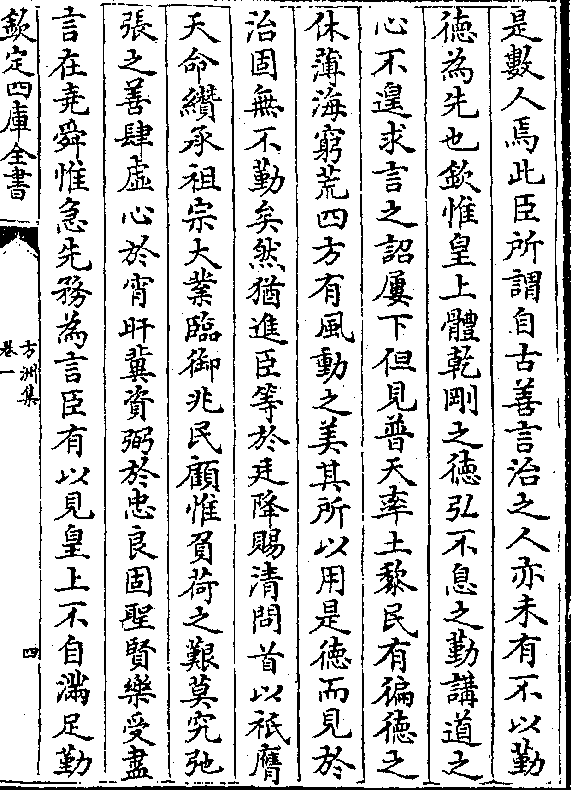 是數人焉此臣所謂自古善言治之人亦未有不以勤
徳為先也欽惟皇上體乾剛之徳弘不息之勤講道之
心不遑求言之詔屢下但見普天率土黎民有徧徳之
休薄海窮荒四方有風動之美其所以用是徳而見於
治固無不勤矣然猶進臣等於廷降賜清問首以祗膺
天命纘承祖宗大業臨御兆民顧惟負荷之艱莫究弛
張之善肆虛心於宵旰冀資弼於忠良固聖賢樂受盡
言在堯舜惟急先務為言臣有以見皇上不自滿足勤
欽定四庫全書
方洲集
卷一
四